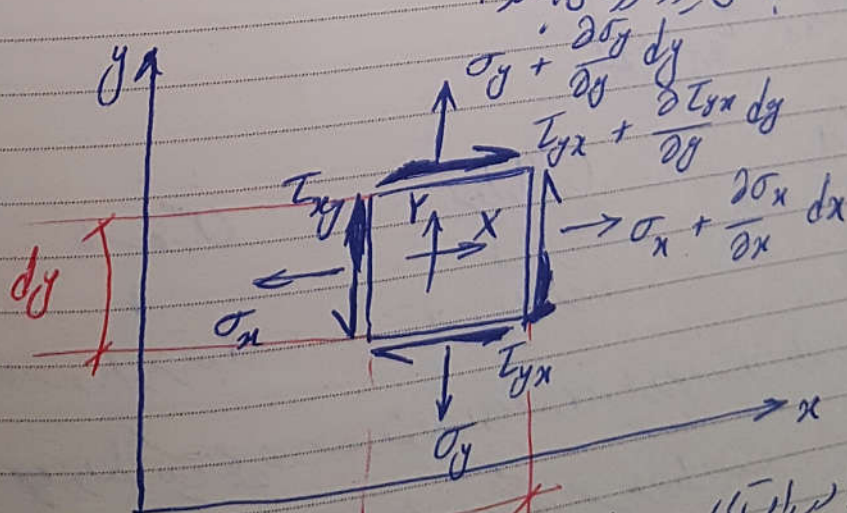 y
σy + ∂σy/∂y dy
τyx + ∂τyx/∂y dy
τxy
Y
X
σx + ∂σx/∂x dx
dy
σx
τyx
σy
x